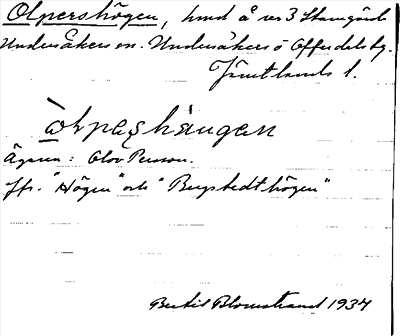 Olpershögen, hmd å nr 3 Stamgärde
Undersåkers sn. Undersåkers o Offerdals tg.
Jämtlands l.
òlṇpeṣhä̀ugen
Ägaren: Olov Person.
Jfr. "Högen" och "Bergstedthögen"
Bertil Blomstrand 1937